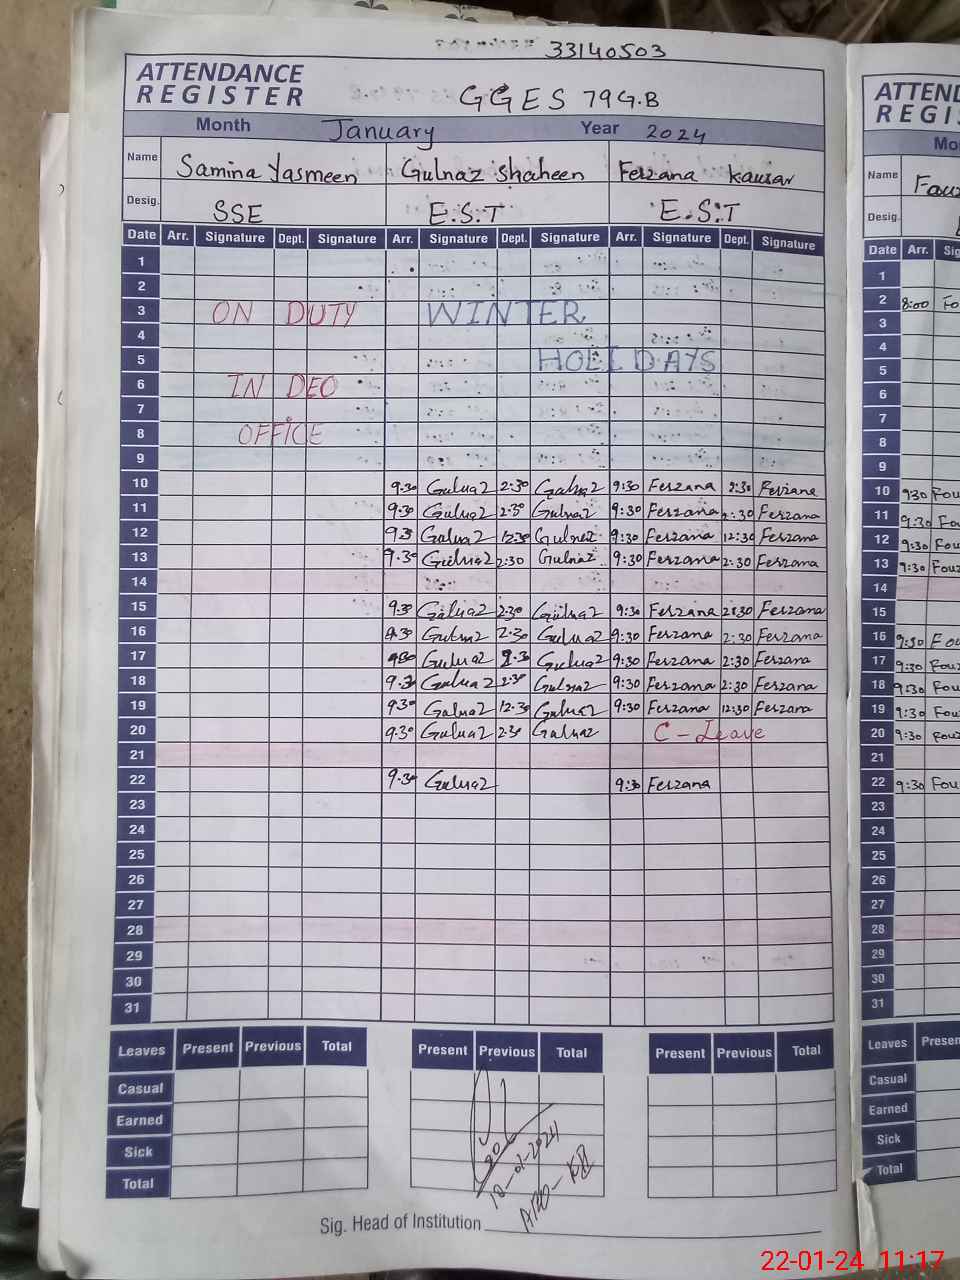 33140503
ATTENDANCE
REGISTER
GGES 79G.B
Month January Year 2024
Name Samina Yasmeen Gulnaz Shaheen Ferzana kausar
Desig. SSE E.S.T E.S.T
Date Arr. Signature Dept. Signature Arr. Signature Dept. Signature Arr. Signature Dept. Signature
1
2
3 ON DUTY WINTER
4
5 HOLIDAYS
6 IN DEO
7
8 OFFICE
9
10 9.30 Gulnaz 2:30 Gulnaz 9:30 Ferzana 2:30 Ferzana
11 9.30 Gulnaz 2:30 Gulnaz 9:30 Ferzana 2:30 Ferzana
12 9.30 Gulnaz 12:30 Gulnaz 9:30 Ferzana 12:30 Ferzana
13 9.30 Gulnaz 2:30 Gulnaz 9:30 Ferzana 2:30 Ferzana
14
15 9.30 Gulnaz 2:30 Gulnaz 9:30 Ferzana 2:30 Ferzana
16 9.30 Gulnaz 2.30 Gulnaz 9:30 Ferzana 2:30 Ferzana
17 9.30 Gulnaz 2.30 Gulnaz 9:30 Ferzana 2:30 Ferzana
18 9.30 Gulnaz 2:30 Gulnaz 9:30 Ferzana 2:30 Ferzana
19 9.30 Gulnaz 12.30 Gulnaz 9:30 Ferzana 12:30 Ferzana
20 9.30 Gulnaz 2:30 Gulnaz C-Leave
21
22 9.30 Gulnaz 9:30 Ferzana
23
24
25
26
27
28
29
30
31
Leaves Present Previous Total Present Previous Total Present Previous Total
Casual
Earned
Sick
Total
18-01-2024
Sig. Head of Institution
ATTEND
REGI
Mo
Name Fouz
Desig.
Date Arr. Sig
1
2 8:00 Fo
3
4
5
6
7
8
9
10 9:30 Fou
11 9:30 Fo
12 9:30 Fou
13 9:30 Fouz
14
15
16 9:30 Fou
17 9:30 Fou
18 9:30 Fou
19 9:30 Fou
20 9:30 Fouz
21
22 9:30 Fou
23
24
25
26
27
28
29
30
31
Leaves Presen
Casual
Earned
Sick
Total
22-01-24 11:17